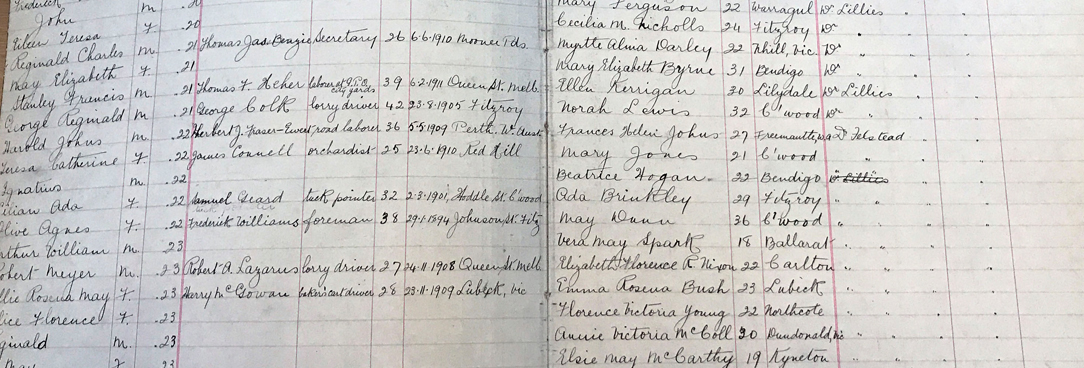 Frederick Mary Ferguson 22 Warragul Dr Lillies
John .20 Cecilia M. Nicholls 24 Fitzroy Dr "
Eilen Teresa F. .20 Myrtle Alma Darley 22 Nhill, Vic. Dr "
Reginald Charles M. .21 Thomas Jas. Benzie Secretary 26 6.6.1910 Moonee Pds. Mary Elizabeth Byrne 31 Bendigo Dr "
May Elizabeth F. .21 Ellen Kerrigan 30 Lilydale Dr Lillies
Stanley Francis M. .21 Thomas F. labourer G.P.O. 39 6.2.1911 Queen St. Melb. Norah Lewis 32 C'wood Dr
George Reginald M. .21 George Colk lorry driver 42 23.8.1905 Fitzroy Frances Helen Johns 27 Freemantle, W.A. Dr Felstead
Harold Johns M. .22 Herbert J. Fraser-Ewest road laborer 36 5.5.1909 Perth, W. Aust Mary Jones 21 C'wood " "
Teresa Catherine F. .22 James Connell orchardist 25 23.6.1910 Red Hill Beatrice Hogan 22 Bendigo Dr Lillies
Ignatius M. .22 Ada Brinkley 29 Fitzroy " "
Lilian Ada F. .22 Samuel Geard tuck pointer 32 2.3.1901, Hoddle St. C'wood May Dunn 36 C'wood " "
Olive Agnes F. .22 Frederick Williams foreman 38 29.1.1894 Johnson St. Fitz Vera May Spark 18 Ballarat " "
Arthur William M. .23 Elizabeth Florence R. Nixon 22 Carlton " "
Robert Meyer M. .23 Robert A. Lazarus lorry driver 27 24.11.1908 Queen St. Melb Emma Rosena Bush 23 Lubeck " "
llie Rosena May F. .23 Harry McGowan baker's cart driver 28 23.11.1909 Lubeck, Vic Florence Victoria Young 22 Northcote " "
lice Florence F. .23 Annie Victoria McColl 20 Dundonald, Vic " "
ginald M. .23 Elsie May McCarthy 19 Kyneton " "
May F. .23